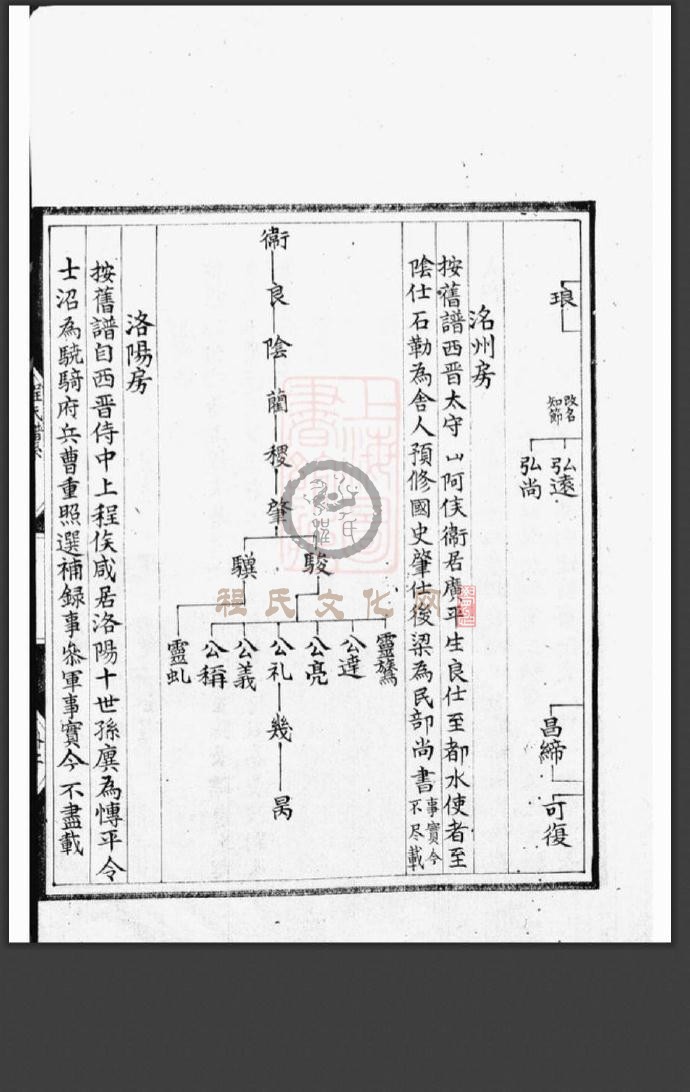 琅
改名
知節
弘遠
弘尚
昌締
可復
洺州房
按舊譜西晋太守山阿侯衞居廣平生良仕至都水使者至
陰仕石勒為舍人預修國史肇仕後梁為民部尚書事實今
不尽載
衞
良
陰
藺
稷
肇
駿
驥
靈鷟
公達
公亮
公礼
公義
公稱
靈虬
幾
昺
洛陽房
按舊譜自西晋侍中上程侯咸居洛陽十世孫廙為慱平令
士沼為驍騎府兵曹重照選補録事叅軍事實今不盡載
上海圖書館
程氏文化网